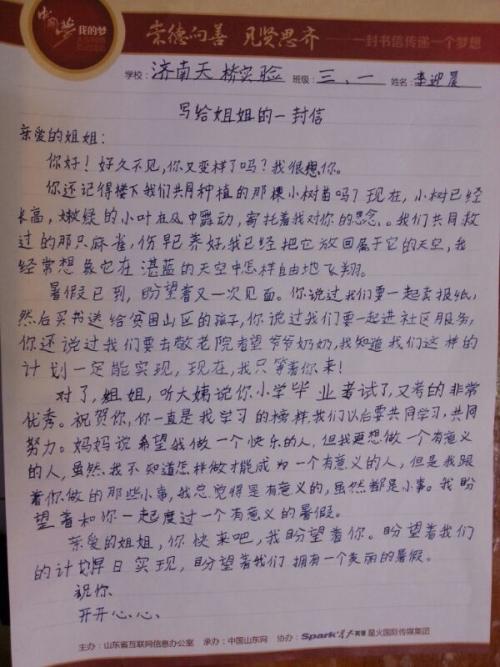 中国梦 我的梦
崇德向善 见贤思齐 一封书信传递一个梦想
学校：济南天桥实验 班级：三、一 姓名：李迎晨
写给姐姐的一封信
亲爱的姐姐：
你好！好久不见，你又变样了吗？我很想你。
你还记得楼下我们共同种植的那棵小树苗吗？现在，小树已经
长高，嫩绿的小叶在风中舞动，寄托着我对你的思念。我们共同救
过的那只麻雀，伤早已养好，我已经把它放回属于它的天空，我
经常想象它在湛蓝的天空中怎样自由地飞翔。
暑假已到，盼望着又一次见面。你说过我们要一起卖报纸，
然后买书送给贫困山区的孩子，你说过我们要一起进社区服务，
你还说过我们要去敬老院看望爷爷奶奶，我知道我们这样的
计划一定能实现，现在，我只等着你来！
对了，姐姐，听大姨说你小学毕业考试了，又考的非常
优秀。祝贺你，你一直是我学习的榜样，我们以后要共同学习，共同
努力。妈妈说希望我做一个快乐的人，但我更想做一个有意义
的人，虽然，我不知道怎样做才能成为一个有意义的人，但是我跟
着你做的那些小事，我总觉得是有意义的，虽然都是小事。我盼
望着和你一起度过一个有意义的暑假。
亲爱的姐姐，你快来吧，我盼望着你。盼望着我们
的计划早日实现，盼望着我们拥有一个美丽的暑假。
祝你
开开心心
主办：山东省互联网信息办公室 承办：中国山东网 协办：Spark 星火英语 星火国际传媒集团